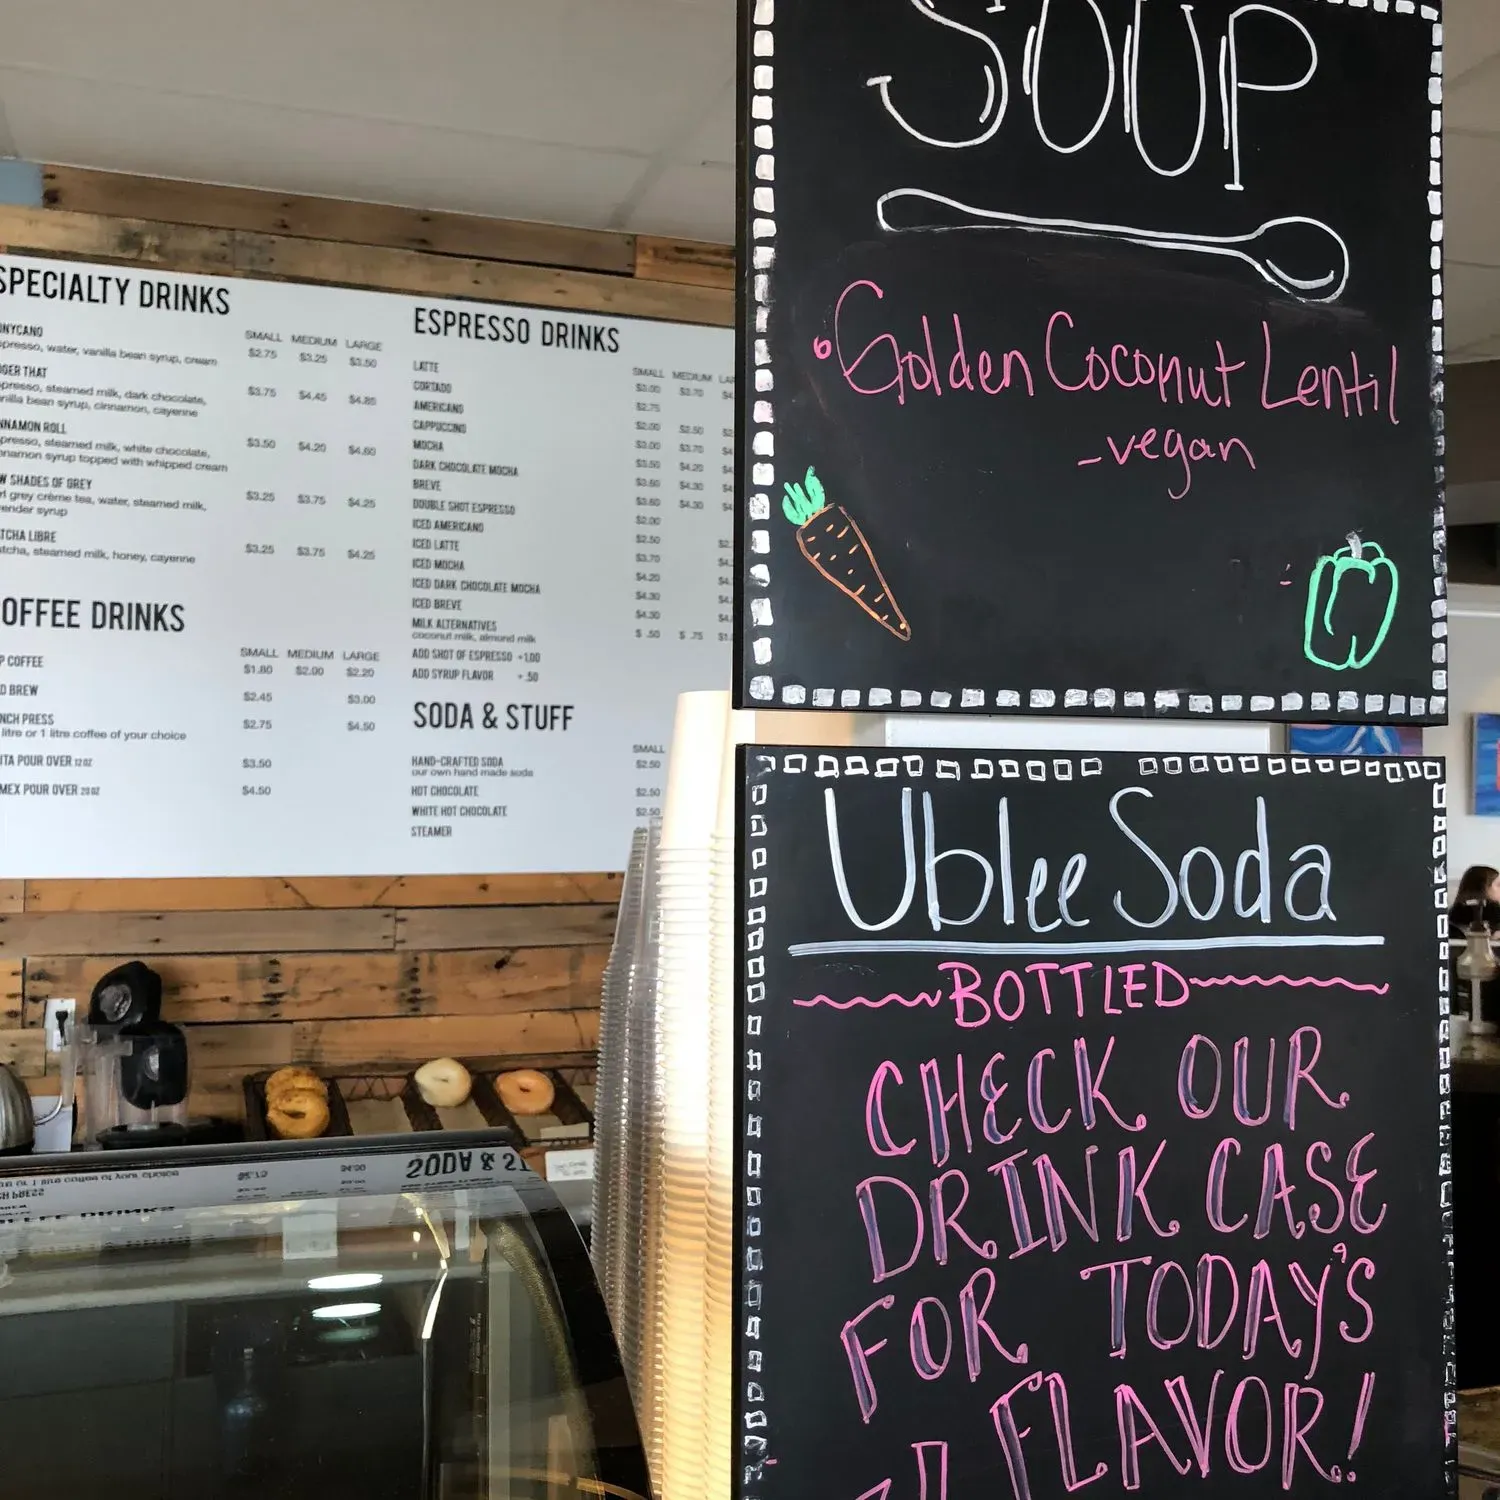 SPECIALTY DRINKS
SMALL MEDIUM LARGE
$2.75 $3.25 $3.50
water, vanilla bean syrup, cream
THAT
steamed milk, dark chocolate, $3.75 $4.45 $4.85
bean syrup, cinnamon, cayenne
ROLL
steamed milk, white chocolate, $3.50 $4.20 $4.60
syrup topped with whipped cream
SHADES OF GREY
grey crème tea, water, steamed milk, $3.25 $3.75 $4.25
syrup
LIBRE
steamed milk, honey, cayenne $3.25 $3.75 $4.25
OFFEE DRINKS
SMALL MEDIUM LARGE
COFFEE $1.80 $2.00 $2.20
BREW $2.45 $3.00
PRESS $2.75 $4.50
litre or 1 litre coffee of your choice
POUR OVER 12 OZ $3.50
POUR OVER 20 OZ $4.50
ESPRESSO DRINKS
SMALL MEDIUM
LATTE $3.00 $3.70
CORTADO $2.75
AMERICANO $2.00 $2.50
CAPPUCCINO $3.00 $3.70
MOCHA $3.50 $4.20
DARK CHOCOLATE MOCHA $3.60 $4.30
BREVE $3.60 $4.30
DOUBLE SHOT ESPRESSO $2.00
ICED AMERICANO $2.50
ICED LATTE $3.70
ICED MOCHA $4.20
ICED DARK CHOCOLATE MOCHA $4.30
ICED BREVE $4.30
MILK ALTERNATIVES $ .50 $ .75
coconut milk, almond milk
ADD SHOT OF ESPRESSO +1.00
ADD SYRUP FLAVOR + .50
SODA & STUFF
SMALL
HAND-CRAFTED SODA $2.50
our own hand made soda
HOT CHOCOLATE $2.50
WHITE HOT CHOCOLATE $2.50
STEAMER
SOUP
Golden Coconut Lentil
-vegan
Ublee Soda
BOTTLED
CHECK OUR
DRINK CASE
FOR TODAY'S
FLAVOR!